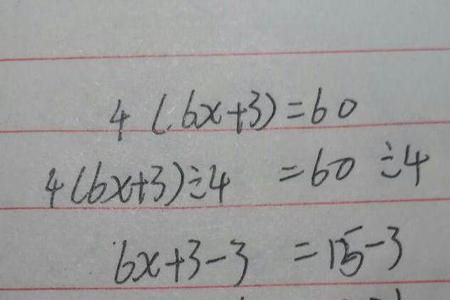 4(6x+3)=60
4(6x+3)÷4=60÷4
6x+3-3=15-3